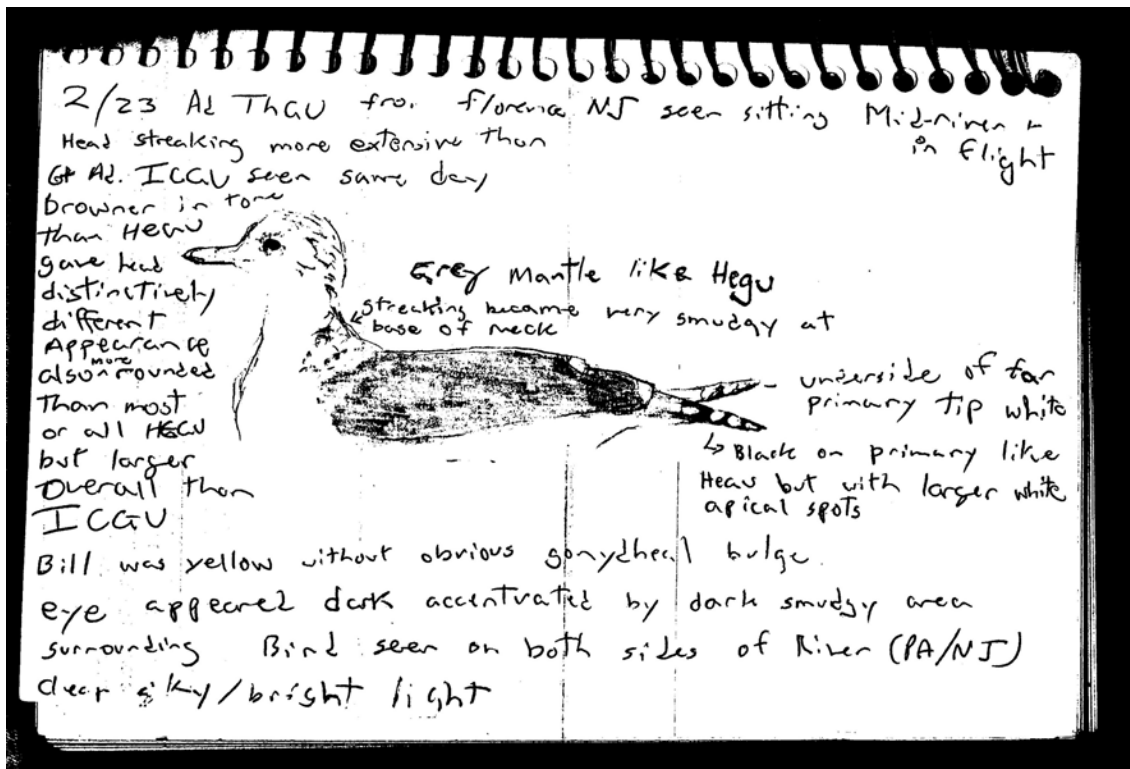 2/23 Ad ThGU from Florence NJ seen sitting Mid-river &
in flight
Head streaking more extensive than
Ad. ICGU seen same day
browner in tone
than HEGU
gave head
distinctively
different
Appearance
also more rounded
than most
or all HEGU
but larger
Overall than
ICGU
Grey mantle like Hegu
streaking became very smudgy at
base of neck
underside of far
primary tip white
↳ Black on primary like
Hegu but with larger white
apical spots
Bill was yellow without obvious gonydheal bulge
eye appeared dark accentuated by dark smudgy area
surrounding Bird seen on both sides of River (PA/NJ)
clear sky/bright light